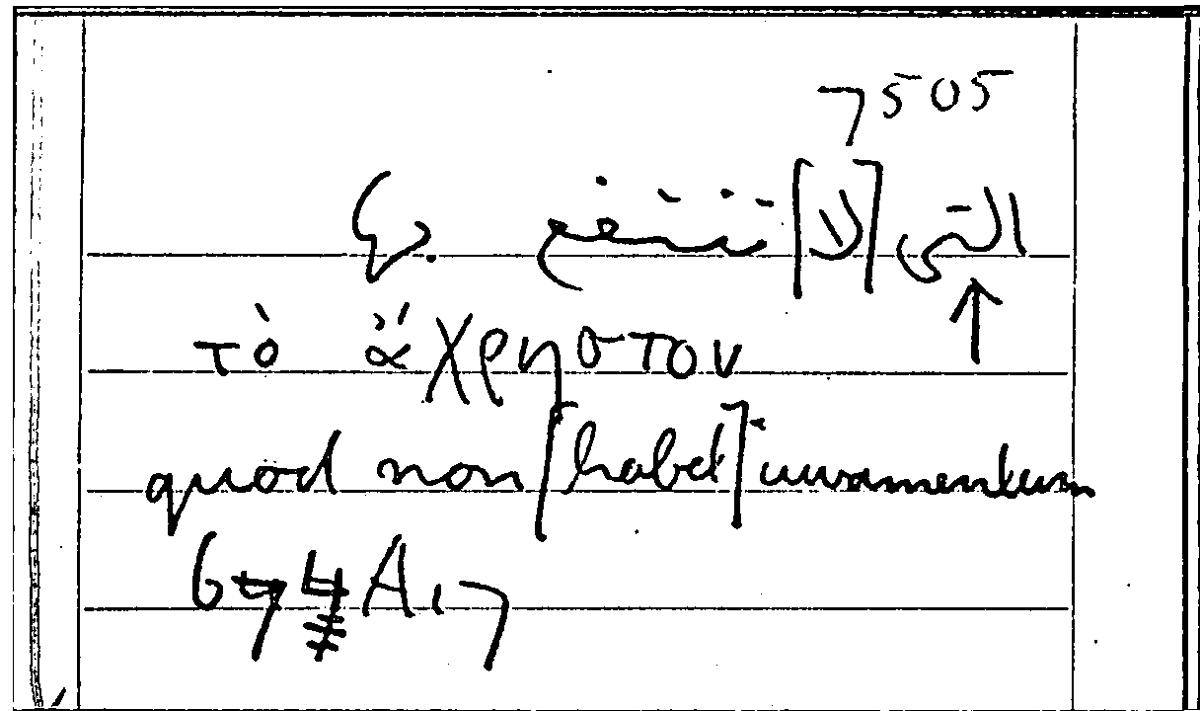 7505
التى [لا] ينتفع بها
τὸ ἄχρηστον
quod non [habet] iuvamentum
674 A 17